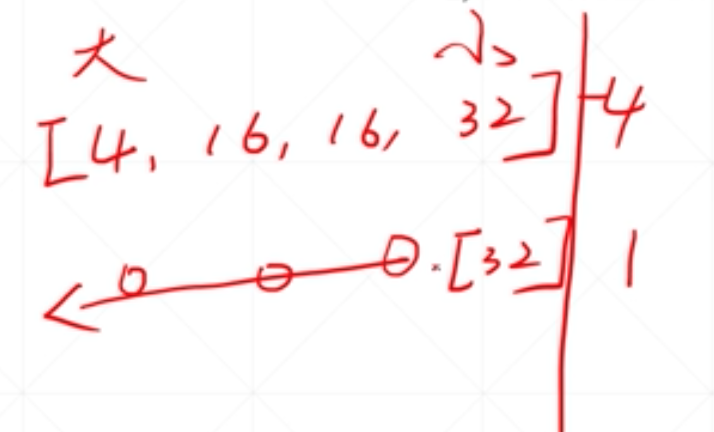 大 小
[4, 16, 16, 32] 4
[32] 1